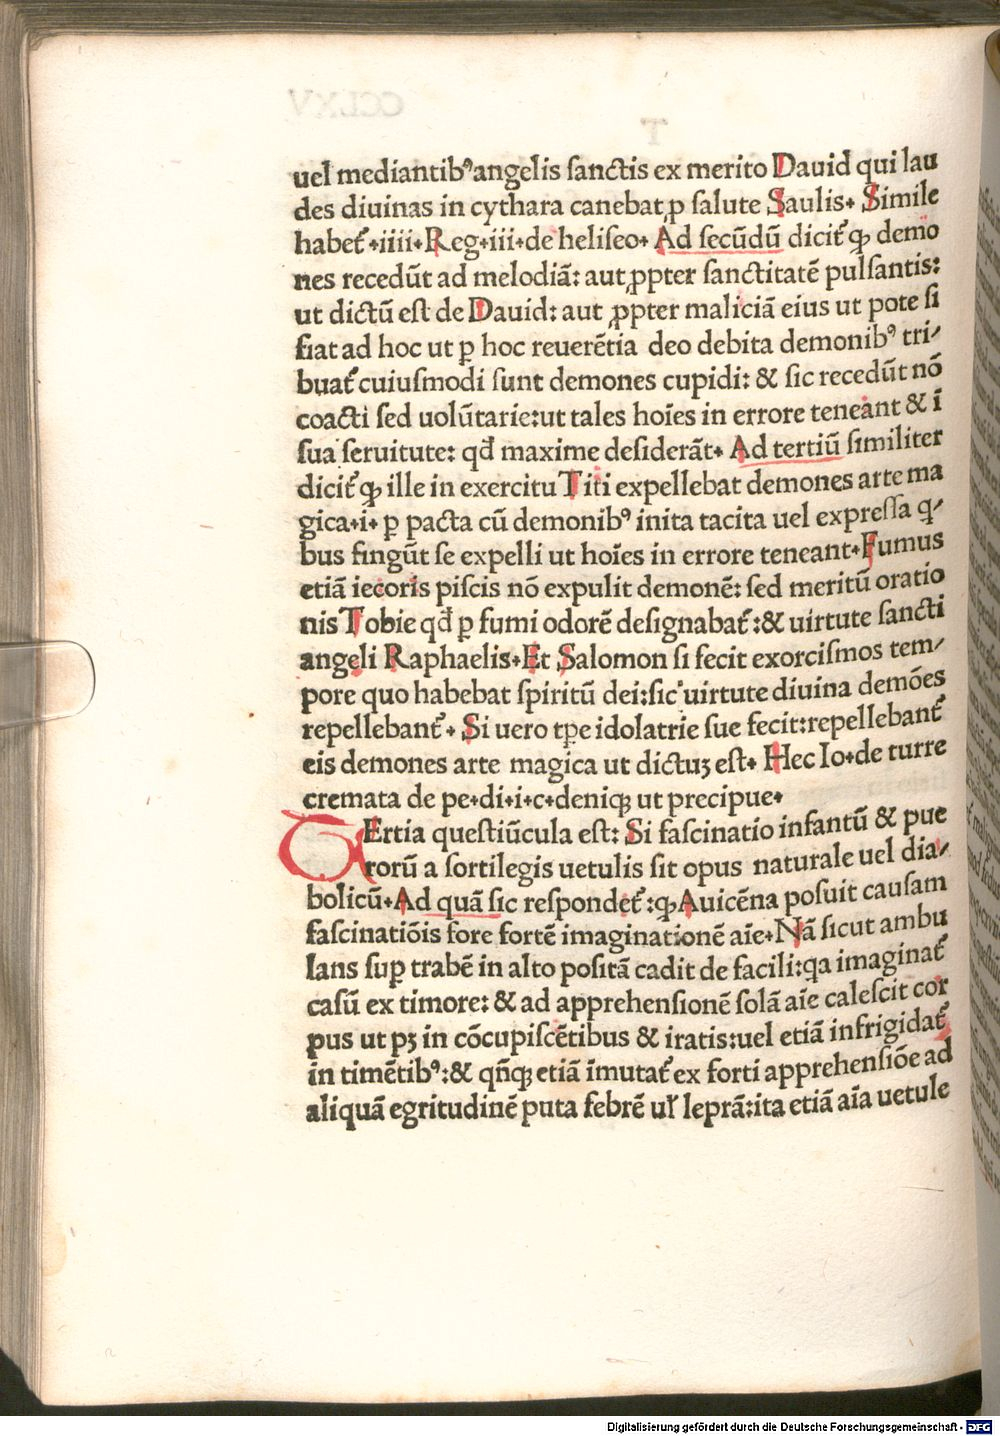 uel mediantibꝰ angelis sanctis ex merito Dauid qui lau
des diuinas in cythara canebat ꝓ salute Saulis. Simile
habet᷑.iiii.Reg.iii.de heliseo. Ad secūdū dicit᷑ ꝙ demo
nes recedūt ad melodiā: aut ꝓpter sanctitatē pulsantis:
ut dictū est de Dauid: aut ꝓpter maliciā eius ut pote si
fiat ad hoc ut ꝑ hoc reuerētia deo debita demonibꝰ tri-
buat᷑ cuiusmodi sunt demones cupidi: & sic recedūt nō
coacti sed uolūtarie:ut tales hoīes in errore teneant & ī
sua seruitute: qđ maxime desiderāt. Ad tertiū similiter
dicit᷑ ꝙ ille in exercitu Titi expellebat demones arte ma
gica.i. ꝑ pacta cū demonibꝰ inita tacita uel expressa q-
bus fingūt se expelli ut hoīes in errore teneant. Fumus
etiā iecoris piscis nō expulit demonē: sed meritū oratio
nis Tobie qđ ꝑ fumi odorē designabat᷑:& uirtute sancti
angeli Raphaelis. Et Salomon si fecit exorcismos tem-
pore quo habebat spiritū dei:sic uirtute diuina demōes
repellebant᷑. Si uero tꝑe idolatrie sue fecit:repellebant᷑
eis demones arte magica ut dictuꝫ est. Hec Io.de turre
cremata de pe.di.i.c.deniqꝫ ut precipue.
TErtia questiūcula est: Si fascinatio infantū & pue
rorū a sortilegis uetulis sit opus naturale uel dia-
bolicū. Ad quā sic respondet᷑:ꝙ Auicēna posuit causam
fascinatiōis fore fortē imaginationē aīe. Nā sicut ambu
lans suꝑ trabē in alto positā cadit de facili:qa imaginat᷑
casū ex timore: & ad apprehensionē solā aīe calescit cor
pus ut pꝫ in cōcupiscētibus & iratis:uel etiā infrigidat᷑
in timētibꝰ:& qn̄qꝫ etiā īmutat᷑ ex forti apprehensiōe ad
aliquā egritudinē puta febrē uꝉ leprā:ita etiā aīa uetule
Digitalisierung gefördert durch die Deutsche Forschungsgemeinschaft - DFG